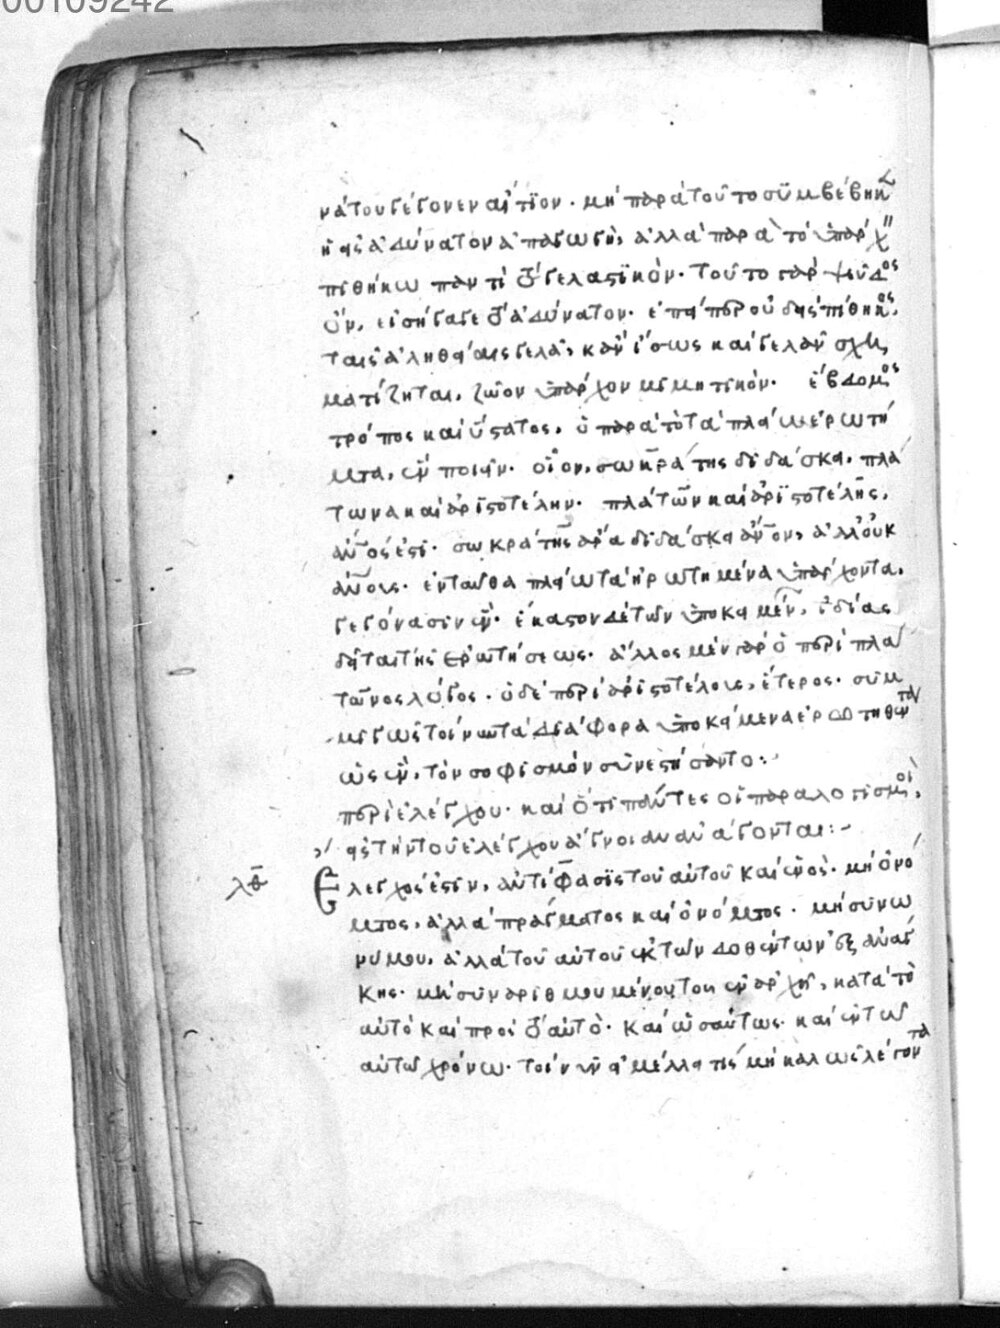 00109242
νάτου γέγονεν αἴτιον. μὴ παρὰ τοῦτο συμβέβηκ
ἡ εἰς ἀδύνατον ἀπαγωγὴ, ἀλλὰ παρὰ τὸ ὑπάρχ
πιθήκω παντὶ τὸ γελαστϊκὸν. τοῦτο γὰρ ψεῦδος
ὂν, εἰσήγαγε τὸ ἀδύνατον. ἐπείπερ οὐδεὶς πίθηκος,
ταῖς ἀληθείαις γελᾶ, κἂν ἴσως καὶ γελᾶν σχη
ματίζηται, ζῶον ὑπάρχον μιμητικὸν. ἕβδομος
τρόπος καὶ ὕστατος, ὁ παρὰ τὸ τὰ πλείω ἐρωτή
ματα, ἓν ποιεῖν. οἷον, σωκράτης διδάσκει, πλά
τωνα καὶ ἀριστοτέλην. πλάτων καὶ ἀριστοτέλης,
αὐτὸς ἐστὶ. σωκράτης ἄρα διδάσκει αὐτὸν, ἀλλ' οὐκ
αὐτοὺς. ἐνταῦθα πλείω τὰ ἠρωτημένα ὑπάρχοντα,
γεγόνασιν ἓν. ἕκαστον δὲ τῶν ὑποκειμένων, ἰδίας
δεῖται τῆς ἐρωτήσεως. ἄλλος μὲν γὰρ ὁ περὶ πλά
τωνος λόγος. ὁ δὲ περὶ ἀριστοτέλους, ἕτερος. συμ
μιγῶς τοίνυν τὰ διάφορα ὑποκείμενα ἐρωτηθέντα
ὡς ἓν, τὸν σοφισμὸν συνεστήσαντο:
περὶ ἐλέγχου. καὶ ὅτι πάντες οἱ παραλογισμοὶ,
εἰς τὴν τοῦ ἐλέγχου ἄγνοιαν ἀνάγονται:
λθ
Ἔλεγχος ἐστὶν, ἀντίφασις τοῦ αὐτοῦ καὶ ἑνὸς. μὴ ὀνό
ματος, ἀλλὰ πράγματος καὶ ὀνόματος. μὴ συνω
νύμου, ἀλλὰ τοῦ αὐτοῦ ἐκ τῶν δοθέντων ἐξ ἀνάγ
κης. μὴ συναριθμουμένου τοῦ ἐν ἀρχῆ, κατὰ τὸ
αὐτὸ καὶ πρὸς τὸ αὐτὸ. καὶ ὡσαύτως. καὶ ἐν τῶ
αὐτῶ χρόνω. τοίνυν εἰ μέλλει τις μὴ καλῶς λέγοντα